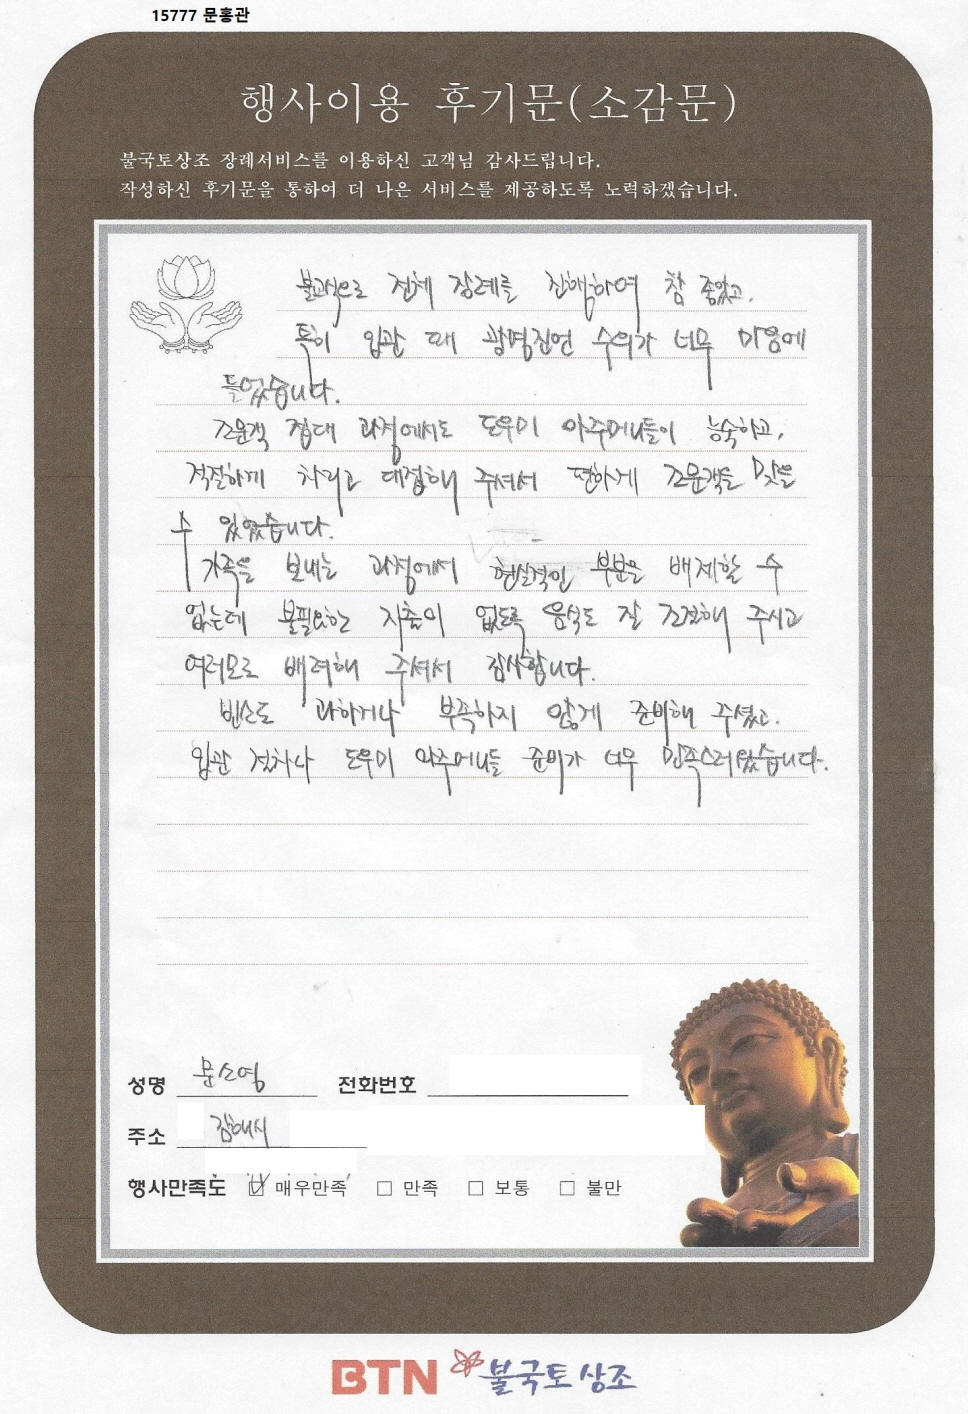 15777 문홍관
행사이용 후기문(소감문)
불국토상조 장례서비스를 이용하신 고객님 감사드립니다.
작성하신 후기문을 통하여 더 나은 서비스를 제공하도록 노력하겠습니다.
불교식으로 전체 장례를 진행하여 참 좋았고,
특히 입관 때 광명진언 수의가 너무 마음에
들었습니다.
조문객 접대 과정에서도 도우미 아주머니들이 능숙하고,
적절하게 차리고 대접해 주셔서 편하게 조문객을 맞을
수 있었습니다.
가족을 보내는 과정에서 현실적인 부분을 배제할 수
없는데 불필요한 지출이 없도록 음식도 잘 조절해 주시고
여러모로 배려해 주셔서 감사합니다.
빈소도 과하거나 부족하지 않게 준비해 주셨고,
입관 절차나 도우미 아주머니들 준비가 너무 만족스러웠습니다.
성명 문소영 전화번호
주소 김해시
행사만족도 ☑ 매우만족 □ 만족 □ 보통 □ 불만
BTN 불국토상조